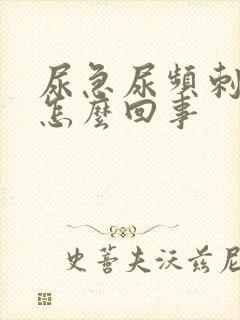 尿急尿頻刺
怎麼回事
史蒂夫沃兹尼